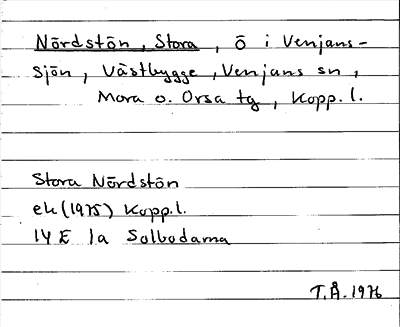 Nördstön, Stora, ö i Venjans-
sjön, Västbygge, Venjans sn,
Mora o. Orsa tg, Kopp. l.
Stora Nördstön
ek (1975) Kopp. l.
14 E 1a Solbodarna
T.Å. 1976